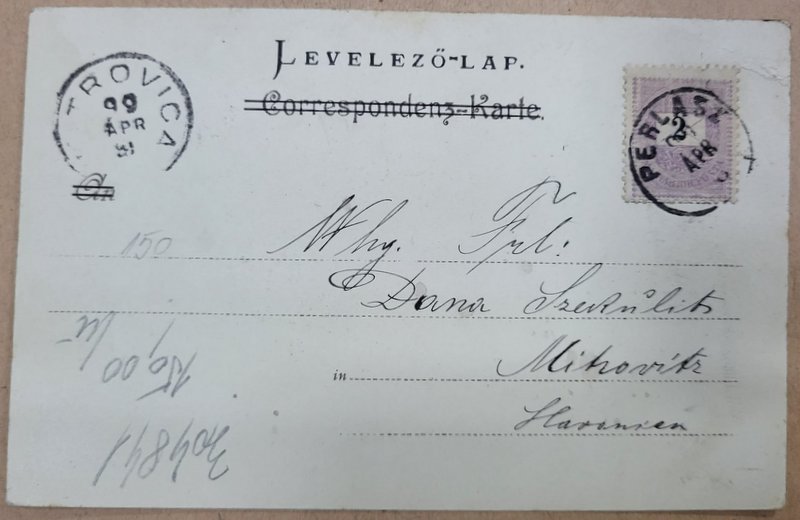 LEVELEZŐ-LAP.
Correspondenz-Karte.
TROVICA
99
APR
PERLASZ
2
APR
An
150
Frl:
Dana Szekulits
in Mitrovitz
Slavonien
150,00